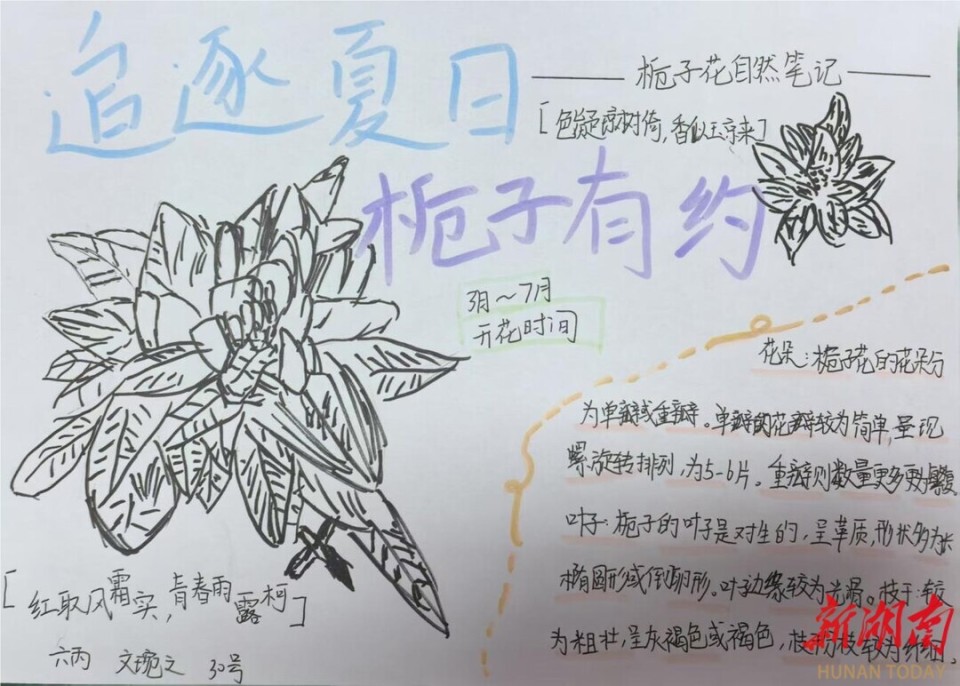 追逐夏日
栀子花自然笔记
[色凝琼树倚，香似玉京来]
栀子有约
3月～7月
开花时间
花朵：栀子花的花朵分
为单瓣或重瓣。单瓣的花瓣较为简单，呈现
螺旋转排列，为5-6片。重瓣则数量更多更为繁复
叶子：栀子的叶子是对生的，呈革质，形状多为长
椭圆形或倒卵形，叶子边缘较为光滑。枝干：较
为粗壮，呈灰褐色或褐色，枝的分枝较为纤细。
[红取风霜实，青春雨露柯]
六丙 文琬之 30号
新湖南
HUNAN TODAY